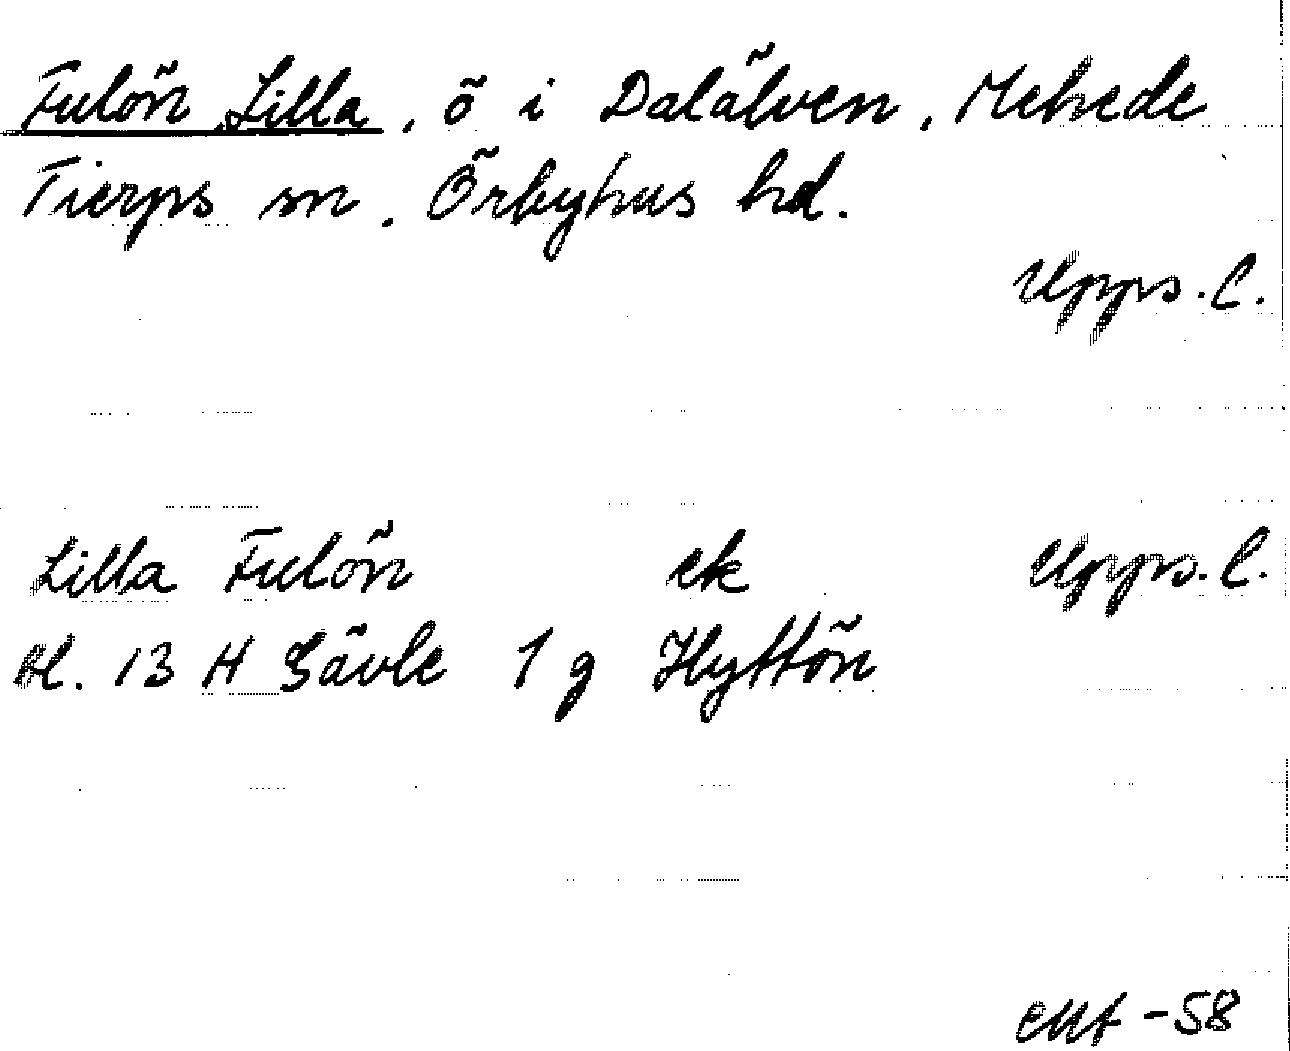 Fulön Lilla, ö i Dalälven, Mehede
Tierps sn. Örbyhus hd.
Upps. l.
Lilla Fulön ek Upps. l.
Bl. 13 H Gävle 1 g Hyttön
-58